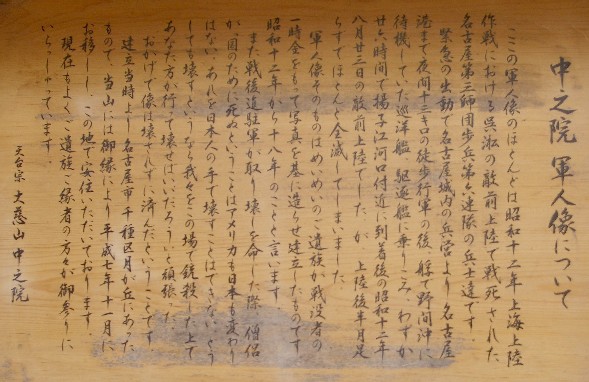 中之院軍人像について
ここの軍人像のほとんどは昭和十二年上海上陸
作戦における呉淞の敵前上陸で戦死された
名古屋第三師団歩兵第六連隊の兵士達です。
緊急の出動で名古屋城内の兵営より名古屋
港まで夜間十二キロの徒歩行軍の後、艀で野間沖に
待機していた巡洋艦、駆逐艦に乗りこみ、わずか
廿六時間で揚子江河口付近に到着後の昭和十二年
八月廿三日の敵前上陸でした。が、上陸後半月足
らずでほとんど全滅、てしまいました
軍人像そのものはめいめいのご遺族が戦没者の
一時金をもって写真を基に造らせ建立したものです。
昭和十二年から十八年のことと言います
また戦後進駐軍が取り壊しを命した際、僧侶
が、国のために死ぬということはアメリカも日本も変わり
はない、あれを日本人の手で壊すことはできない、どう
しても壊すというなら我々をこの場で銃殺した上で
あなた方が行って壊せばいいだろう、と頑張った
おかげで像は壊されずに済んだということです
建立当時より名古屋市千種区月が丘にあった
もので、当山には御縁により平成七年十一月に
お移しし、この地で安住いただいております。
現在もよくご遺族ご縁者の方々が御参りに
いらっしゃっています。
天台宗 大慈山中之院